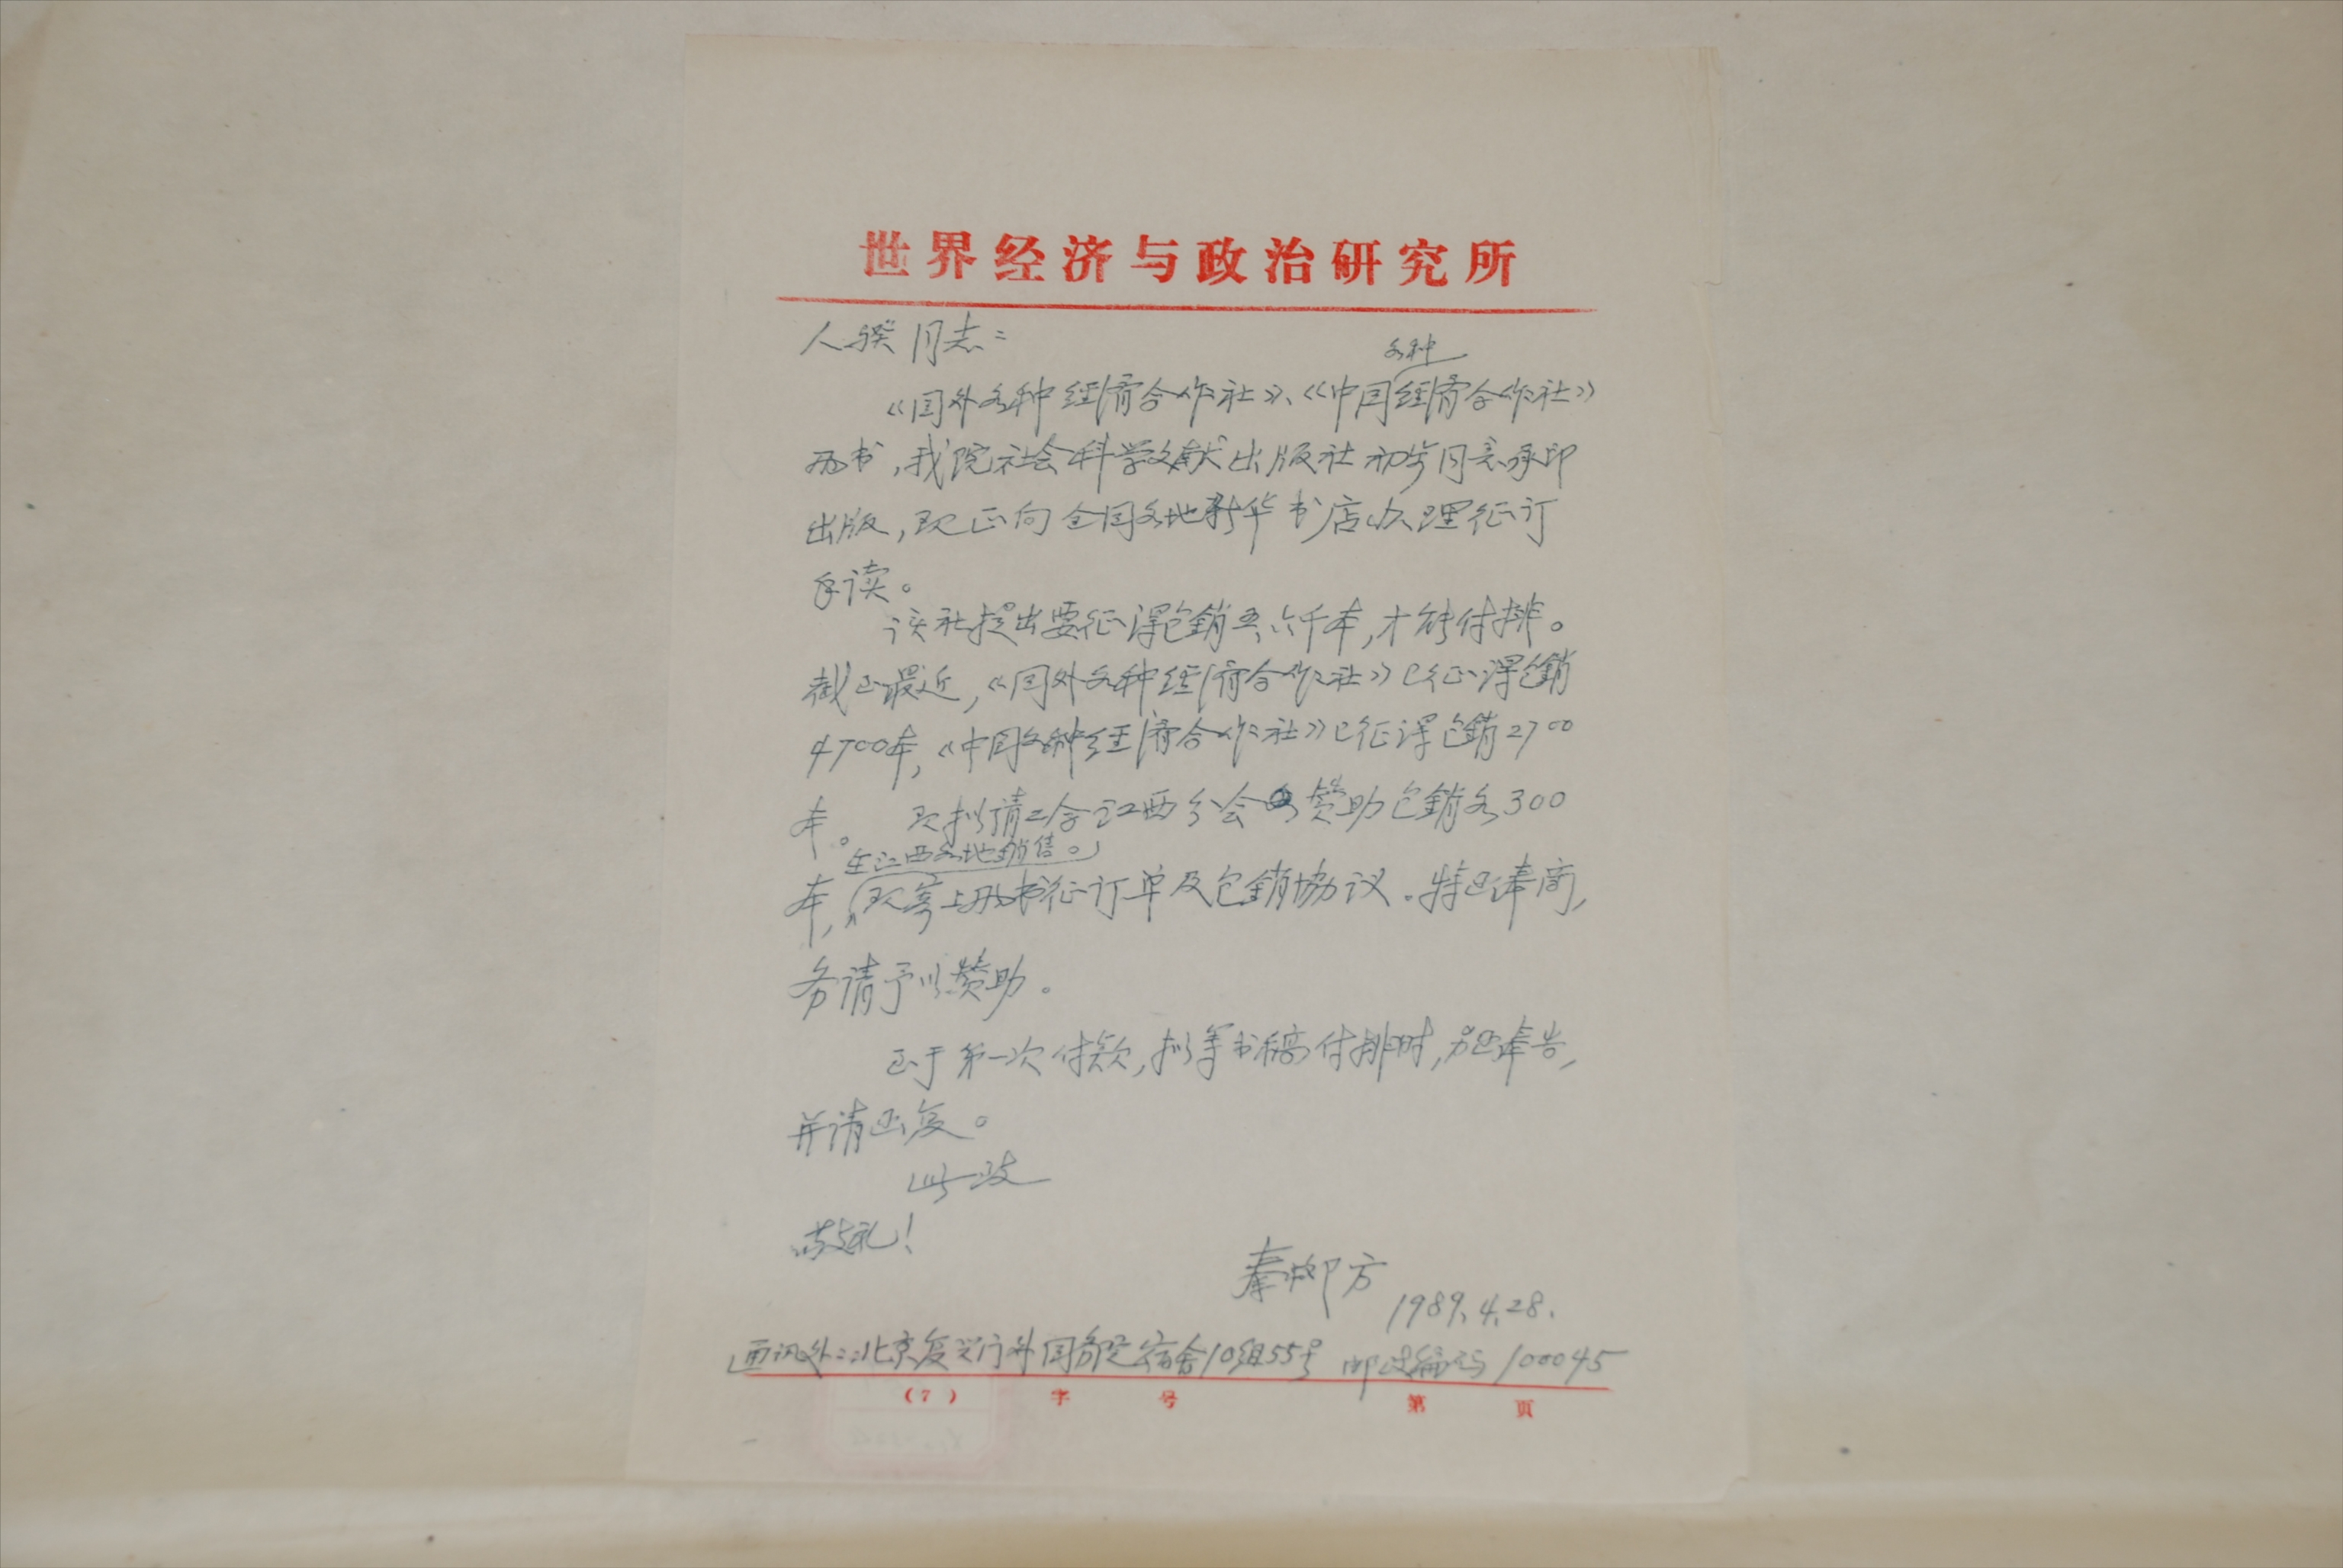 世界经济与政治研究所
人骙同志：
各种
《国外各种经济合作社》、《中国经济合作社》
两书，我院社会科学文献出版社初步同意承印
出版，现正向全国各地新华书店办理征订
手续。
该社提出要征得包銷五、六千本，才能付排。
截止最近，《国外各种经济合作社》已征得包銷
4700本，《中国各种经济合作社》已征得包銷2700
本。 现拟请工合江西分会 赞助包銷各300
在江西各地銷售。
本，现寄上两书征订单及包銷协议。特函奉商，
务请予以赞助。
至于第一次付款，拟等书稿付排时，另函奉告，
并请函复。
此致
敬礼！
秦柳方
1989.4.28.
通讯处：北京复兴门外国务院宿舍10组55号 邮政编码100045
（7） 字 号 第 页